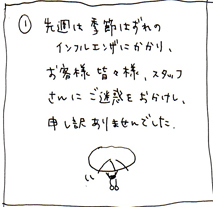 ①
先週は季節はずれの
インフルエンザにかかり、
お客様皆々様、スタッフ
さんにご迷惑をおかけし、
申し訳ありませんでした。